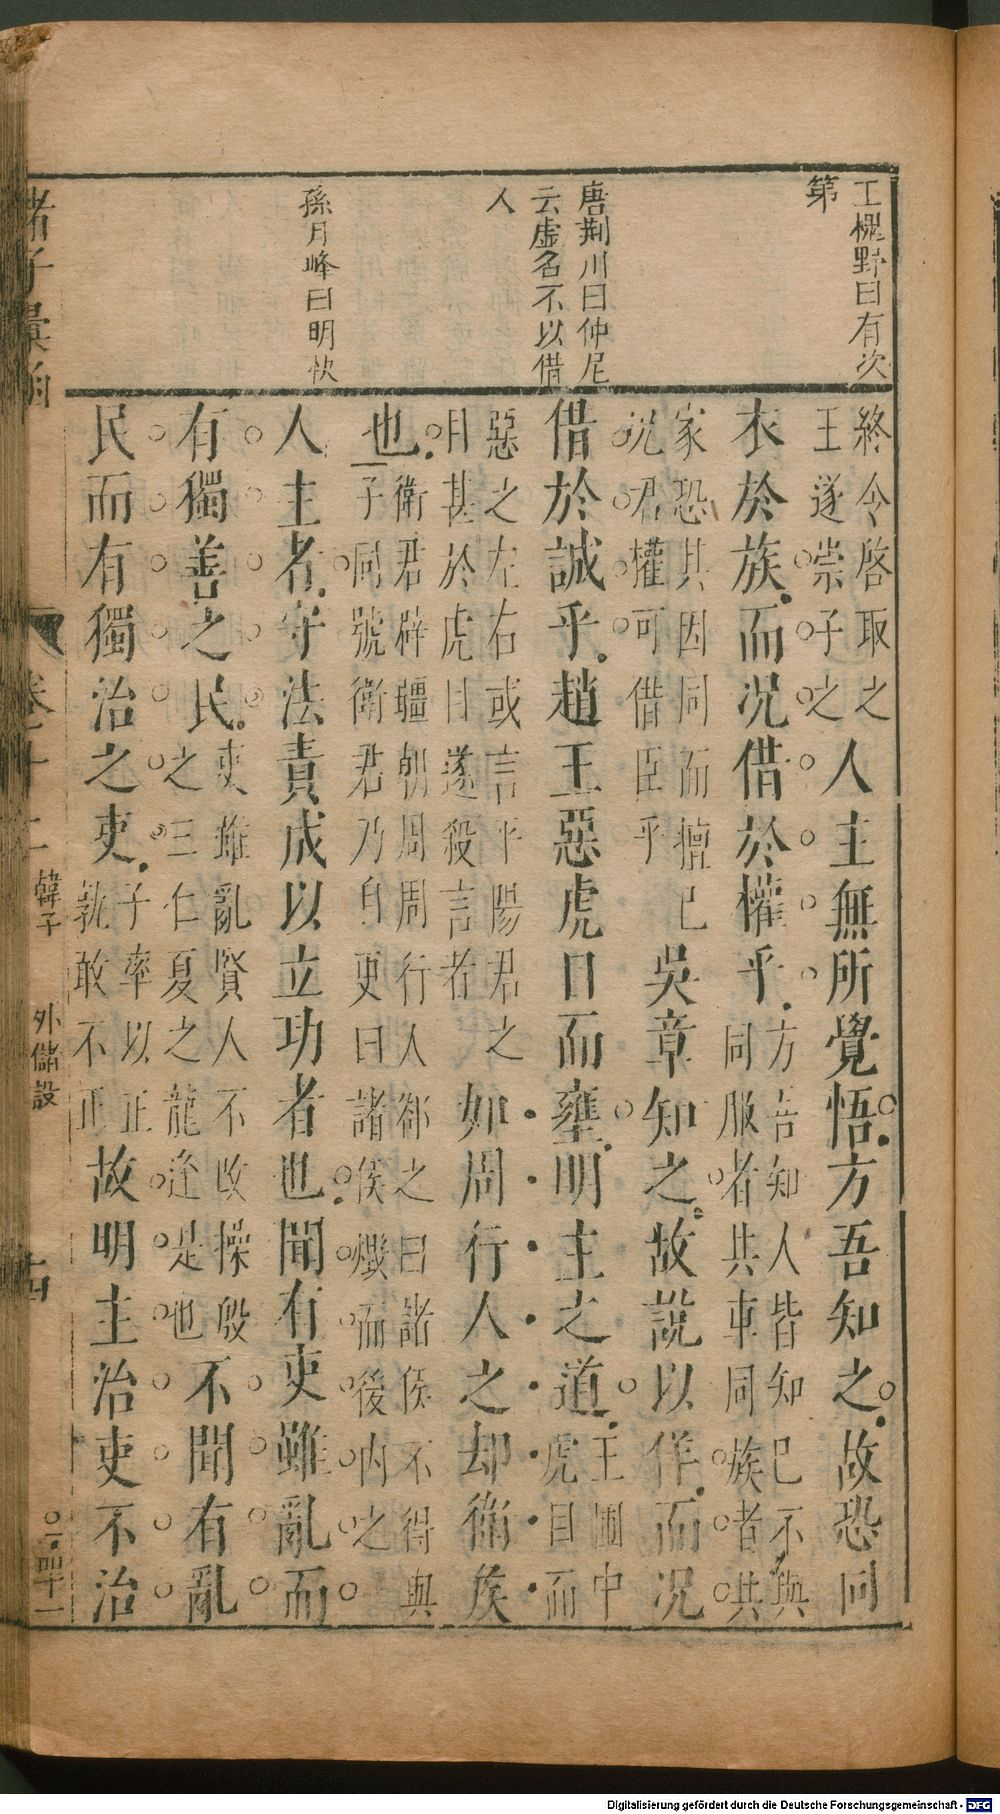 王槐野曰有次
第
唐荊川曰仲尼
云虛名不以借
人
孫月峰曰明快
終令啓取之
王遂崇子之
人主無所覺悟方吾知之故恐同
衣於族而况借於權乎
方吾知人皆知已不與
同服者共車同族者共
家恐其因同而擅已
况君權可借臣乎
吳章知之故說以佯而况
借於誠乎趙王惡虎目而壅明主之道
王圃中
虎目而
惡之左右或言平陽君之
目甚於虎目遂殺言者
如周行人之却衛矦
也
衛君辟疆朝周周行人郤之曰諸侯不得與
子同號衛君乃自更曰諸侯燬而後内之
人主者守法責成以立功者也聞有吏雖亂而
有獨善之民
吏雖亂賢人不改操殷
之三仁夏之龍逢是也
不聞有亂
民而有獨治之吏
子率以正
孰敢不正
故明主治吏不治
諸子彙函
卷十二
韓子
外儲設
十四
Digitalisierung gefördert durch die Deutsche Forschungsgemeinschaft - DFG